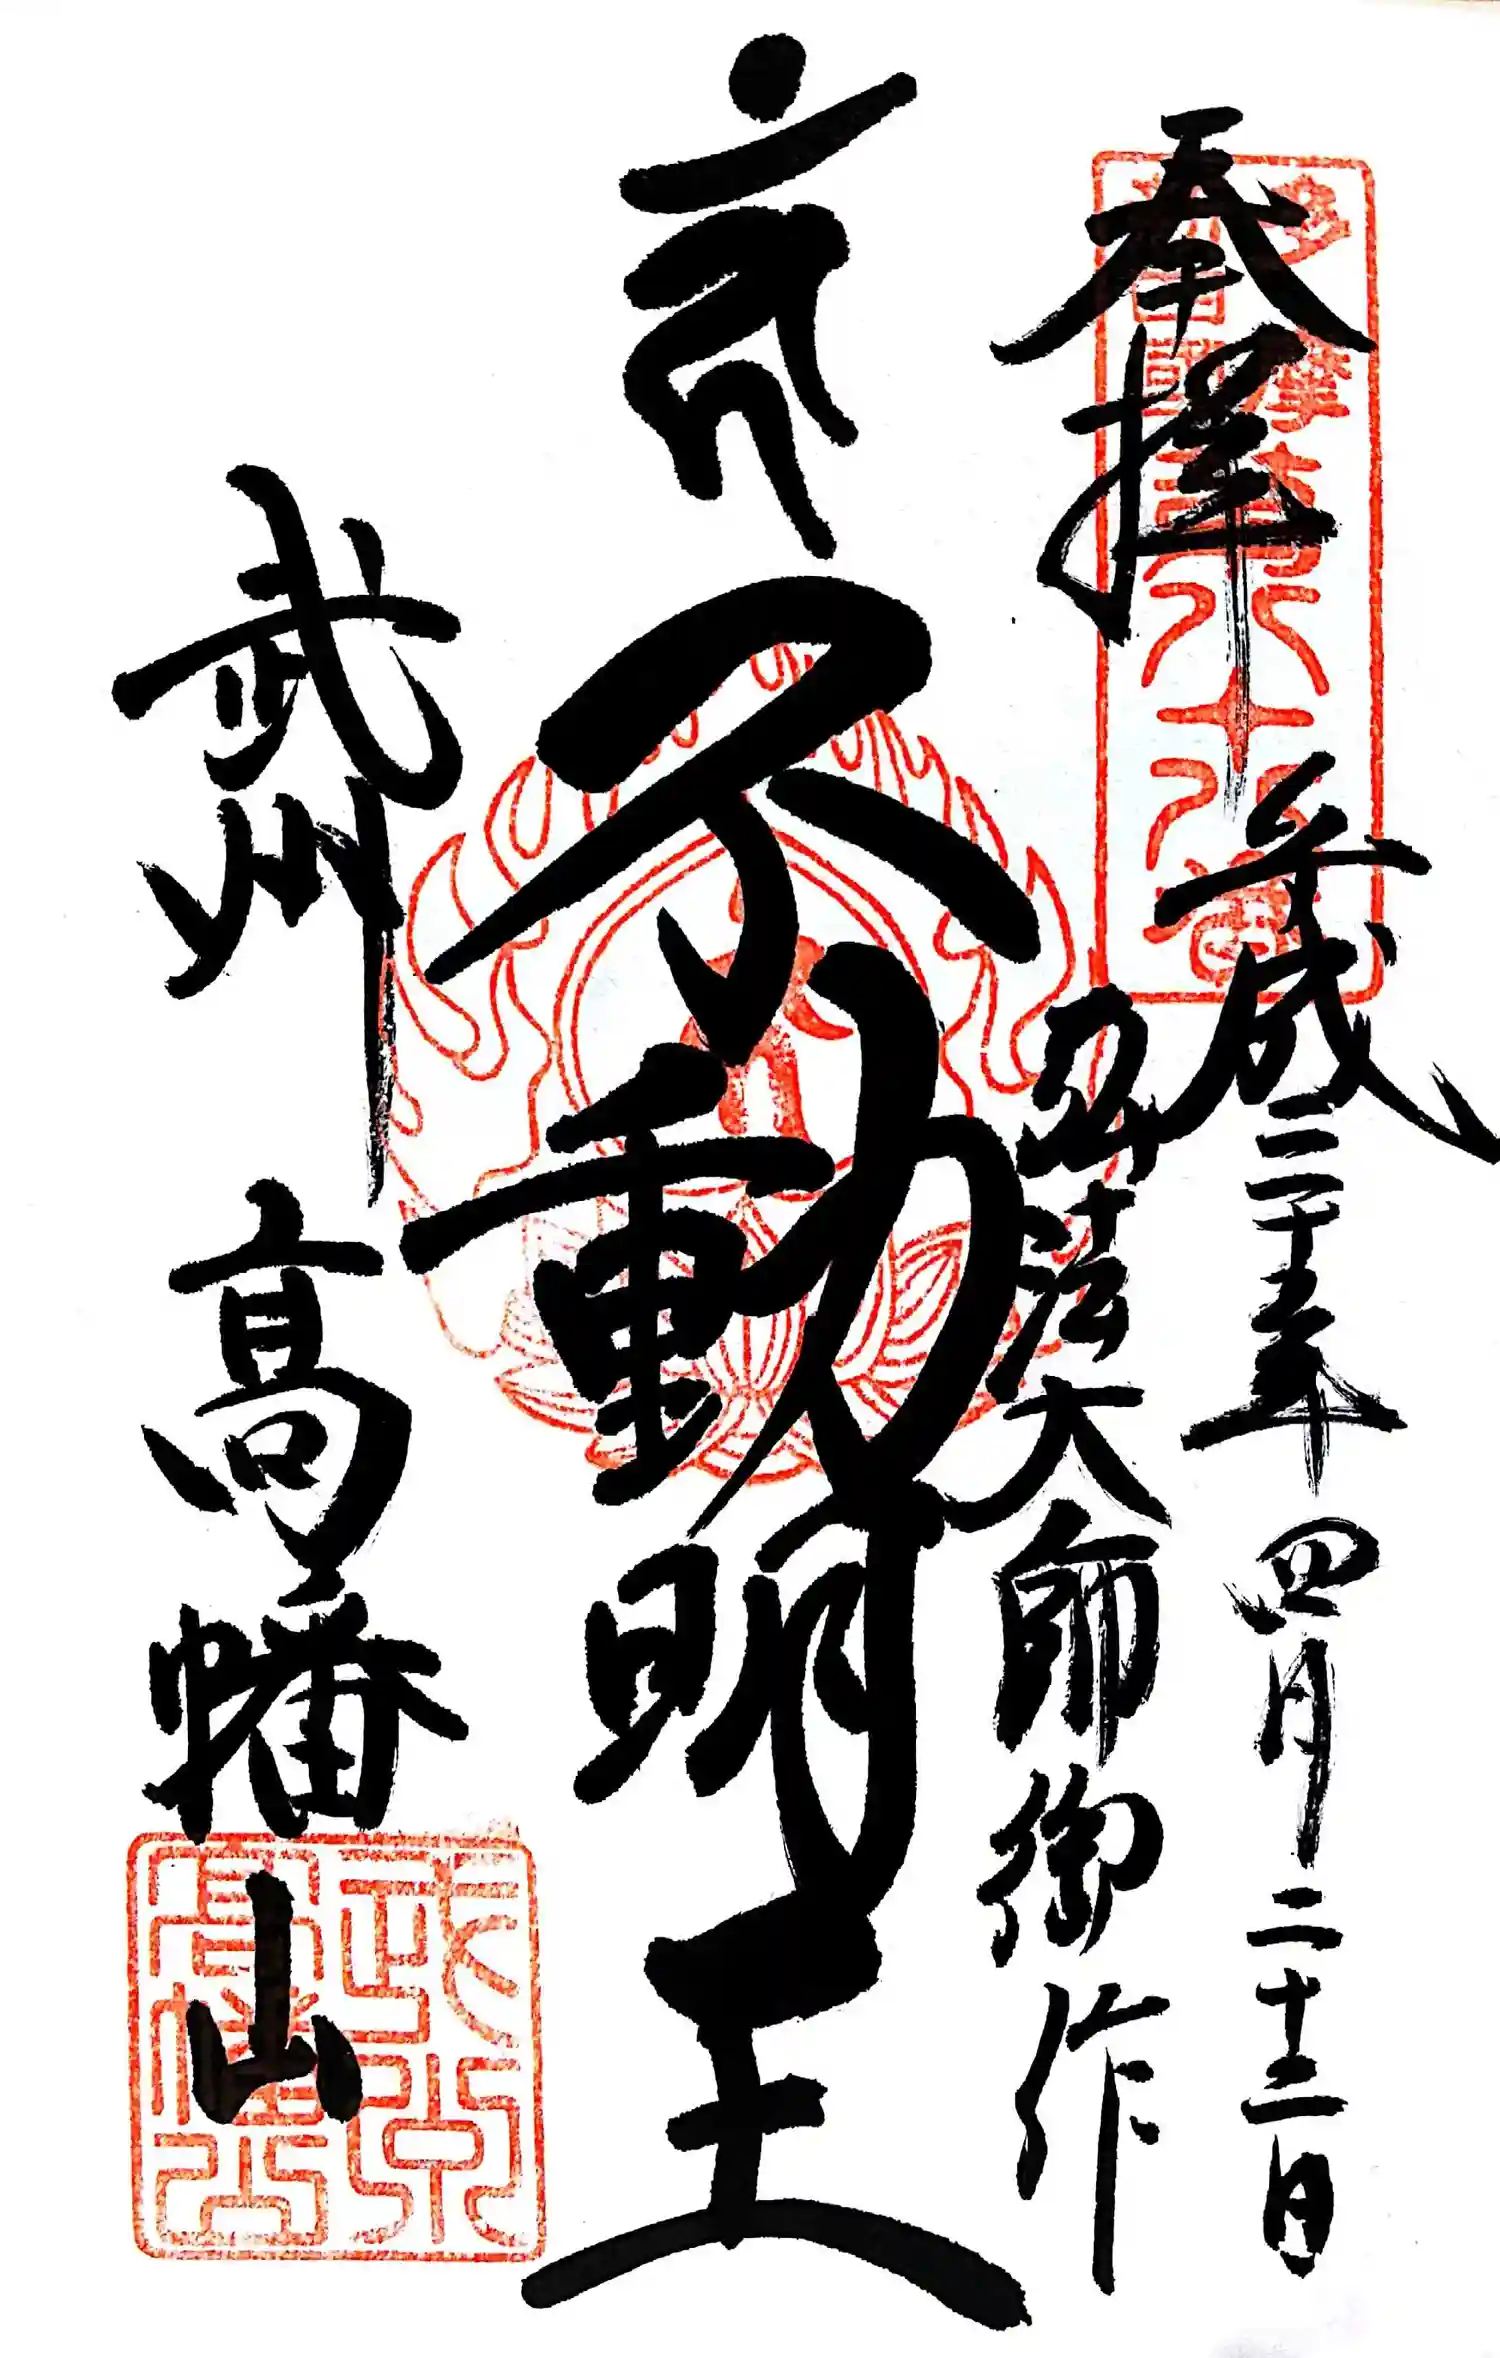 奉拝 平成二十五年四月二十二日
弘法大師御作
不動明王
武州 高幡山